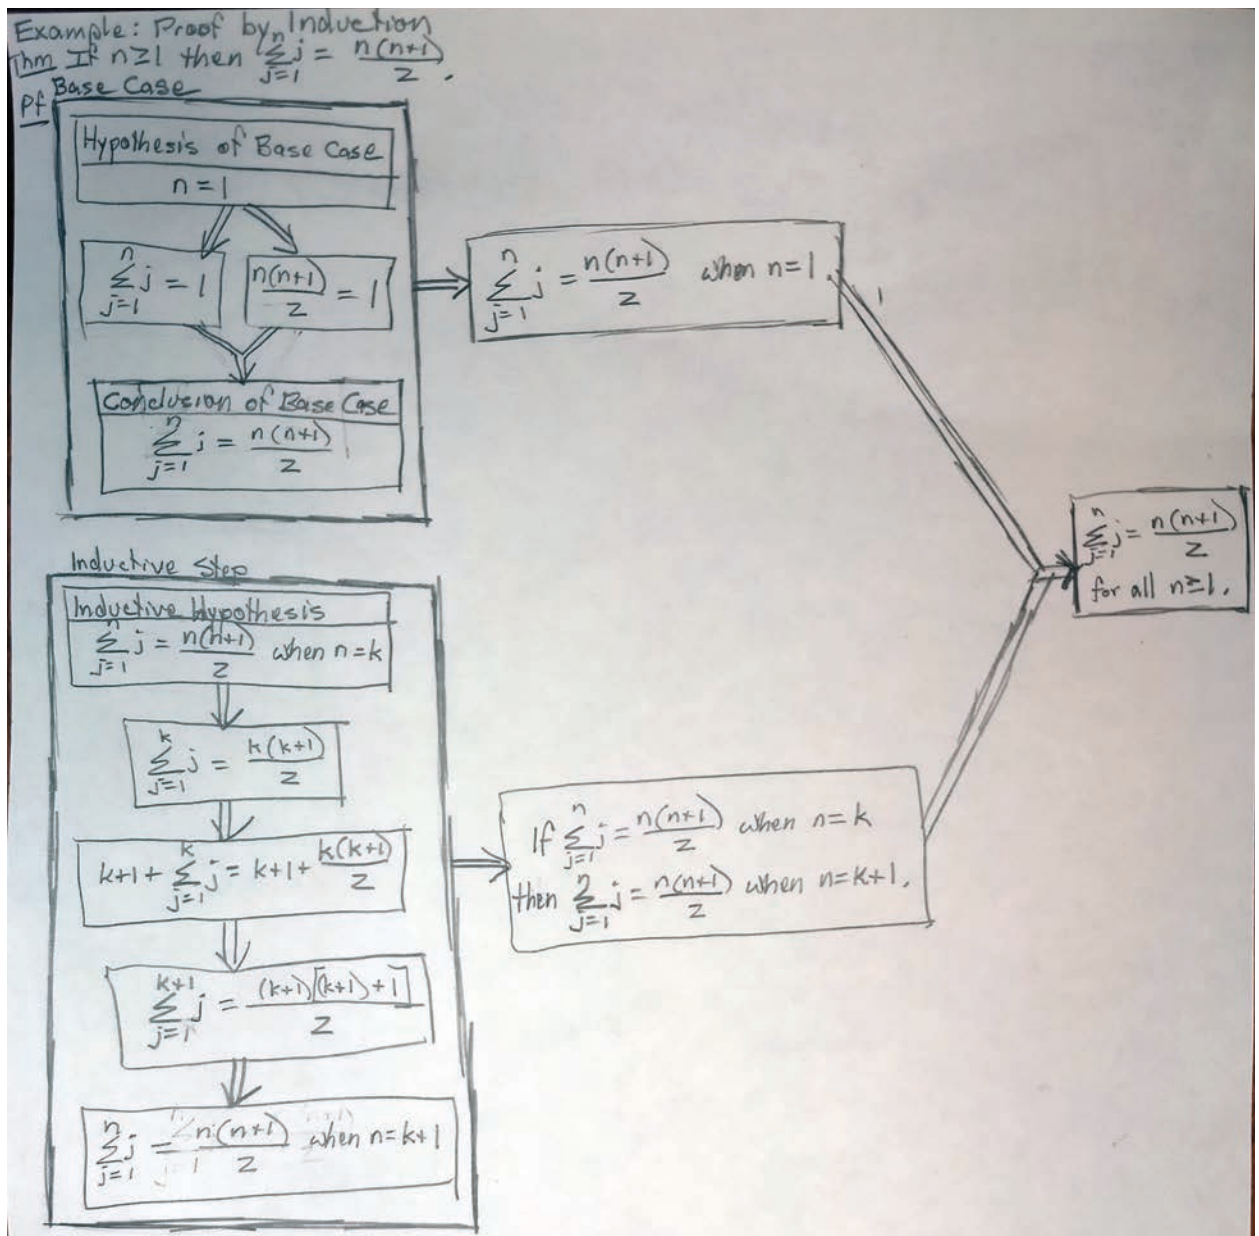 Example: Proof by Induction
Thm If n≥1 then \sum_{j=1}^{n} j = \frac{n(n+1)}{2}.
Pf Base Case
Hypothesis of Base Case
n=1
\sum_{j=1}^{n} j = 1
\frac{n(n+1)}{2} = 1
Conclusion of Base Case
\sum_{j=1}^{n} j = \frac{n(n+1)}{2}
\sum_{j=1}^{n} j = \frac{n(n+1)}{2} when n=1.
Inductive Step
Inductive Hypothesis
\sum_{j=1}^{n} j = \frac{n(n+1)}{2} when n=k
\sum_{j=1}^{k} j = \frac{k(k+1)}{2}
k+1+\sum_{j=1}^{k} j = k+1+\frac{k(k+1)}{2}
\sum_{j=1}^{k+1} j = \frac{(k+1)[(k+1)+1]}{2}
\sum_{j=1}^{n} j = \frac{n(n+1)}{2} when n=k+1
If \sum_{j=1}^{n} j = \frac{n(n+1)}{2} when n=k
then \sum_{j=1}^{n} j = \frac{n(n+1)}{2} when n=k+1.
\sum_{j=1}^{n} j = \frac{n(n+1)}{2}
for all n≥1.